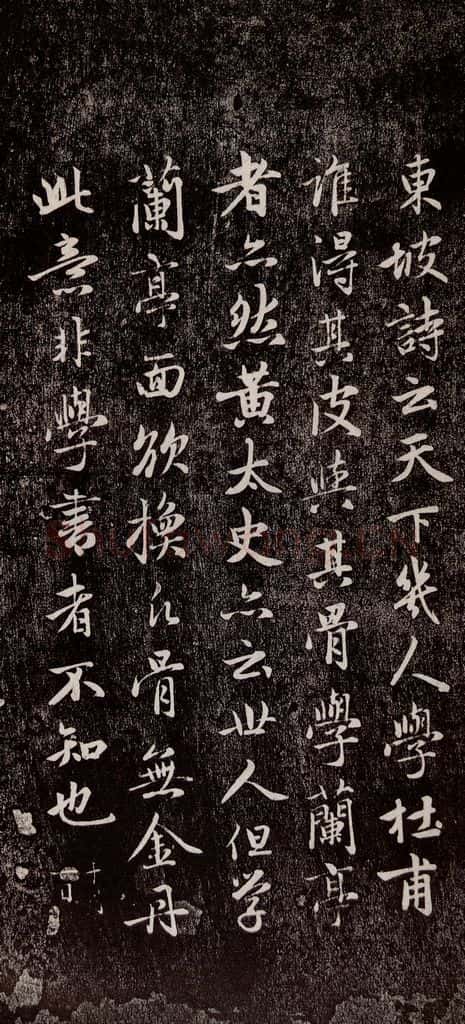 東坡詩云天下幾人學杜甫
誰得其皮與其骨學蘭亭
者亦然黃太史亦云世人但学
蘭亭面欲換凡骨無金丹
此意非學書者不知也
十一日